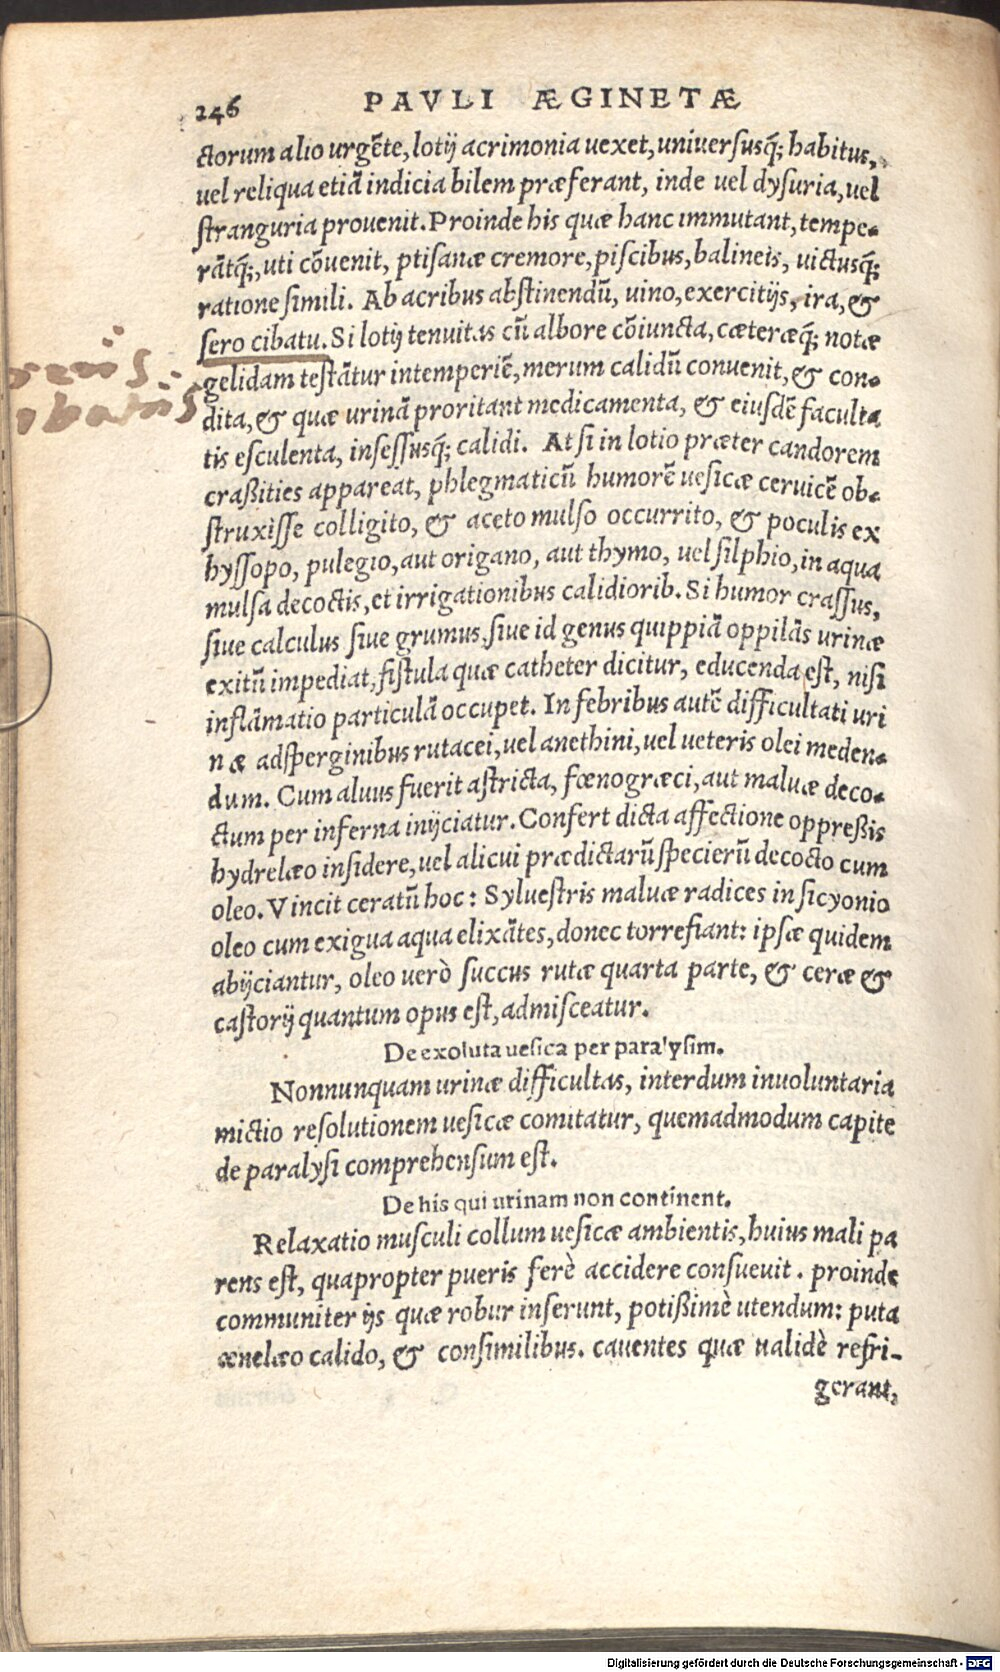 246 PAVLI ÆGINETÆ
ctorum alio urgẽte, lotij acrimonia uexet, uniuersusq́; habitus,
uel reliqua etiã indicia bilem præferant, inde uel dysuria, uel
stranguria prouenit. Proinde his quæ hanc immutant, tempe-
rãtq́;, uti cõuenit, ptisanæ cremore, piscibus, balineis, uictusq́;
ratione simili. Ab acribus abstinendũ, uino, exercitijs, ira, &
sero cibatu. Si lotij tenuitas cũ albore cõiuncta, cæteræq́; notæ
gelidam testãtur intemperiẽ, merum calidũ conuenit, & con-
dita, & quæ urinã proritant medicamenta, & eiusdẽ faculta
tis esculenta, insessusq́; calidi. At si in lotio præter candorem
craßities appareat, phlegmaticũ humorẽ uesicæ ceruicẽ ob-
struxisse colligito, & aceto mulso occurrito, & poculis ex
hyssopo, pulegio, aut origano, aut thymo, uel silphio, in aqua
mulsa decoctis, et irrigationibus calidiorib. Si humor crassus,
siue calculus siue grumus, siue id genus quippiã oppilãs urinæ
exitũ impediat, fistula quæ catheter dicitur, educenda est, nisi
inflãmatio particulã occupet. In febribus autẽ difficultati uri
næ adsperginibus rutacei, uel anethini, uel ueteris olei meden-
dum. Cum aluus fuerit astricta, fœnogræci, aut maluæ deco-
ctum per inferna inijciatur. Confert dicta affectione oppreßis
hydrelæo insidere, uel alicui prædictarũ specierũ decocto cum
oleo. Vincit ceratũ hoc: Syluestris maluæ radices in sicyonio
oleo cum exigua aqua elixãtes, donec torrefiant: ipsæ quidem
abijciantur, oleo uerò succus rutæ quarta parte, & ceræ &
castorij quantum opus est, admisceatur.
De exoluta uesica per paralysim.
Nonnunquam urinæ difficultas, interdum inuoluntaria
mictio resolutionem uesicæ comitatur, quemadmodum capite
de paralysi comprehensum est.
De his qui urinam non continent.
Relaxatio musculi collum uesicæ ambientis, huius mali pa
rens est, quapropter pueris ferè accidere consueuit. proinde
communiter ijs quæ robur inserunt, potißimè utendum: puta
ænelæo calido, & consimilibus. cauentes quæ ualidè refri-
gerant,
Digitalisierung gefördert durch die Deutsche Forschungsgemeinschaft - DFG